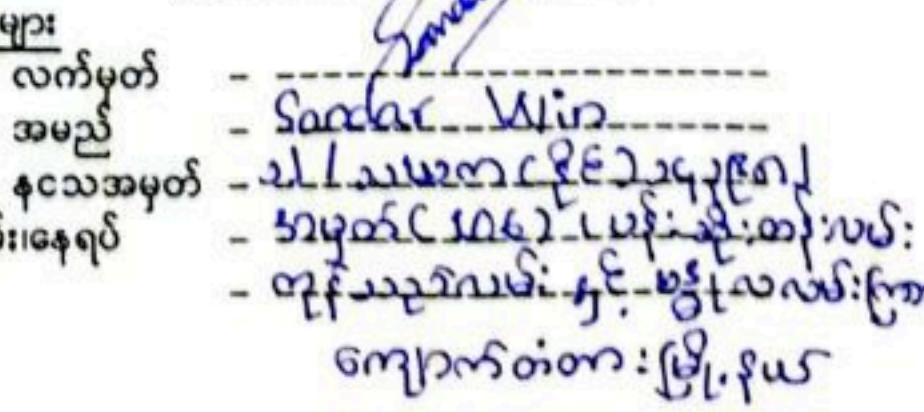 များ
လက်မှတ် -
အမည် - Sandar Win
နငသအမှတ် - ၁၂/သဃက(နိုင်)
း၊နေရပ် - အမှတ်(106) ပန်းဆိုးတန်းလမ်း
- ကုန်သည်လမ်း နှင့် မဟာဗန္ဓုလလမ်းကြား
ကျောက်တံတားမြို့နယ်